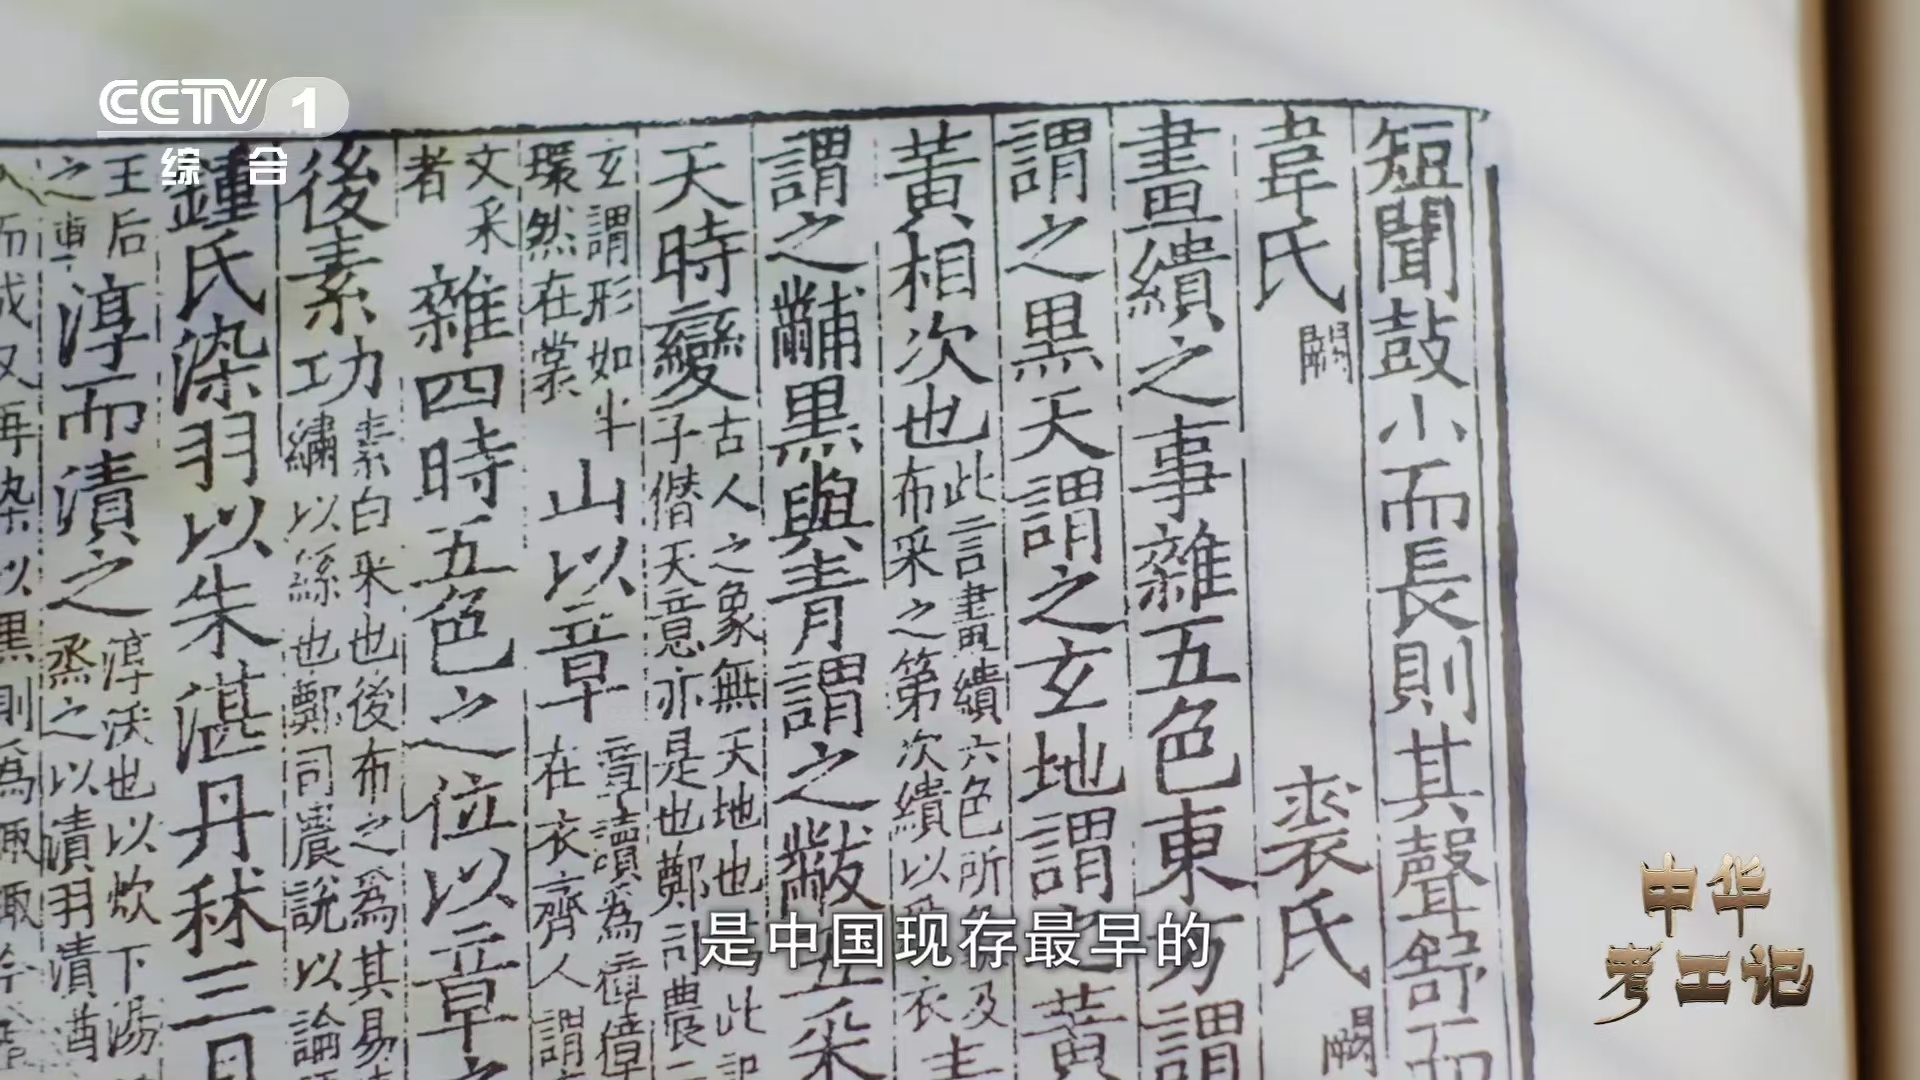 CCTV 1
综合
短聞鼓小而長則其聲舒而
韋氏 闕 裘氏 闕
畫繢之事雜五色東方謂
謂之黑天謂之玄地謂之黃
黃相次也 此言畫繢六色所 及
布采之第次繢以 衣
謂之黼黑與青謂之黻五采
天時變 古人之象無天地也 此記
子僣天意亦是也鄭司農
玄謂形如半
環然在裳
山以章 章讀爲獐獐
在衣齊人謂
文采
者
雜四時五色之位以章之
後素功 素白采也後布之爲其易
繡以絲也鄭司農說以論
鍾氏染羽以朱湛丹秫三月
王后
之車
淳而漬之 淳沃也以炊下湯
烝之以漬羽漬酋
而成又再染以黑則爲緅緅
是中国现存最早的
中华
考工记